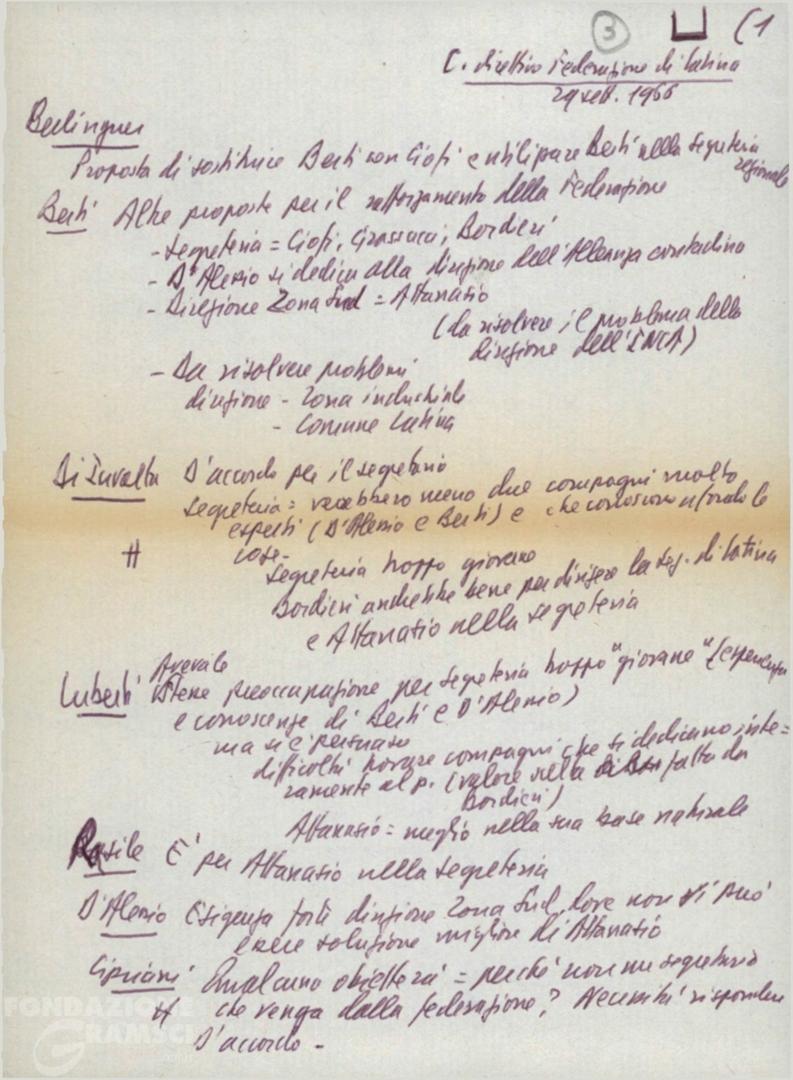 3 (1
C. direttivo Federazione di Latina
29 sett. 1966
Berlinguer
Proposta di sostituire Berti con Ciofi e utilizzare Berti nella segreteria
regionale
Berti Altre proposte per il rafforzamento della Federazione
- Segreteria = Ciofi, Grassucci, Bordieri
- D'Alessio si dedica alla direzione dell'Alleanza contadina
- Direzione Zona Sud = Attanasio
(da risolvere il problema della
direzione dell'INCA)
- Da risolvere problemi
direzione - Zona industriale
- Comune Latina
D'accordo per il segretario
Segreteria = verrebbero meno due compagni molto
esperti (D'Alessio e Berti) e che conoscono a fondo le
cose -
Segreteria troppo giovane
Bordieri andrebbe bene per dirigere la seg. di Latina
e Attanasio nella segreteria
Luberti Aveva le
stesse preoccupazioni per segreteria troppo "giovane" (esperienza
e conoscenze di Berti e D'Alessio)
ma si è persuaso
difficoltà trovare compagni che si dedicano inte=
ramente al p. (valore scelta fatta da
Bordieri)
Attanasio = meglio nella sua base naturale
E' per Attanasio nella segreteria
D'Alessio Esigenza forte direzione Zona Sud dove non vi può
essere soluzione migliore di Attanasio
Cipriani Qualcuno obietterà = perché non un segretario
che venga dalla federazione? Necessità rispondere
D'accordo -
FONDAZIONE
GRAMSCI